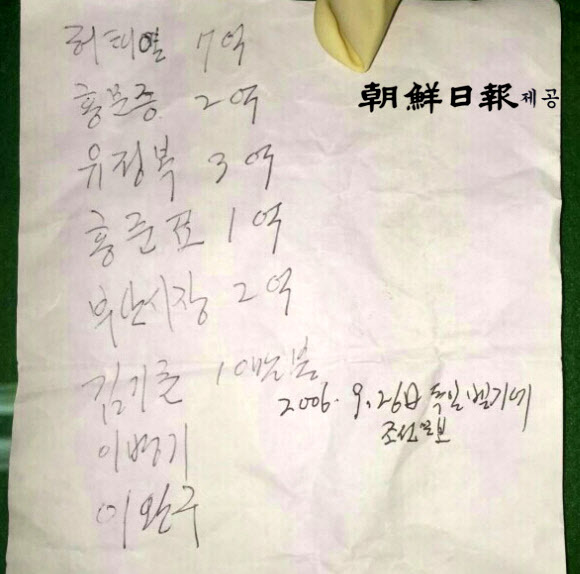 허태열 7억
朝鮮日報제공
홍문종 2억
유정복 3억
홍준표 1억
부산시장 2억
김기춘 10만불
2006. 9. 26日 독일 벨기에
조선일보
이병기
이완구